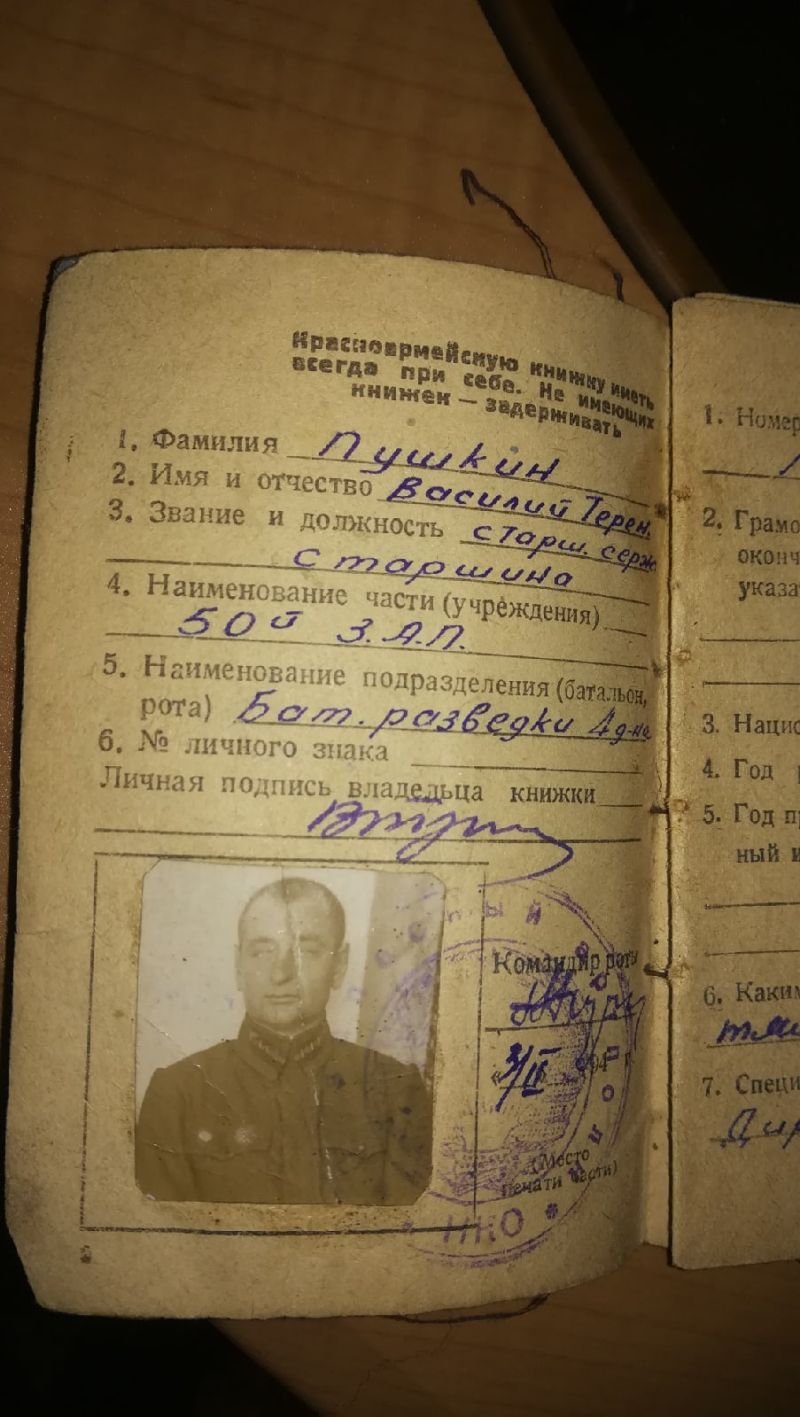 Красноармейскую книжку иметь
всегда при себе. Не имеющих
книжек — задерживать
1. Фамилия Пушкин
2. Имя и отчество Василий Терен.
3. Звание и должность старш. серж.
старшина
4. Наименование части (учреждения)
50й З.А.П.
5. Наименование подразделения (батальон,
рота) Бат. разведки
6. № личного знака
Личная подпись владельца книжки
Командир роты
(Место
печати части)
НКО
1. Номер
2. Грамо
оконч
указа
3. Нацио
4. Год
5. Год п
ный и
6. Каким
7. Специ